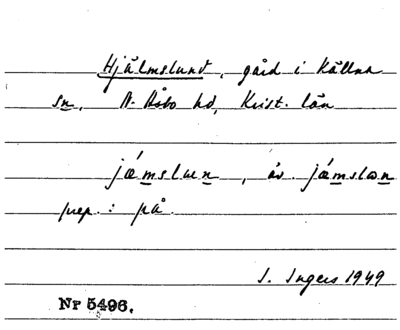 Hjälmslund, gård i Källna
sn, N. Åsbo hd, Krist. län
jǽmslun, äv. jǽmslɷn
prep.: på.
I. Ingers 1949
Nr 5496.